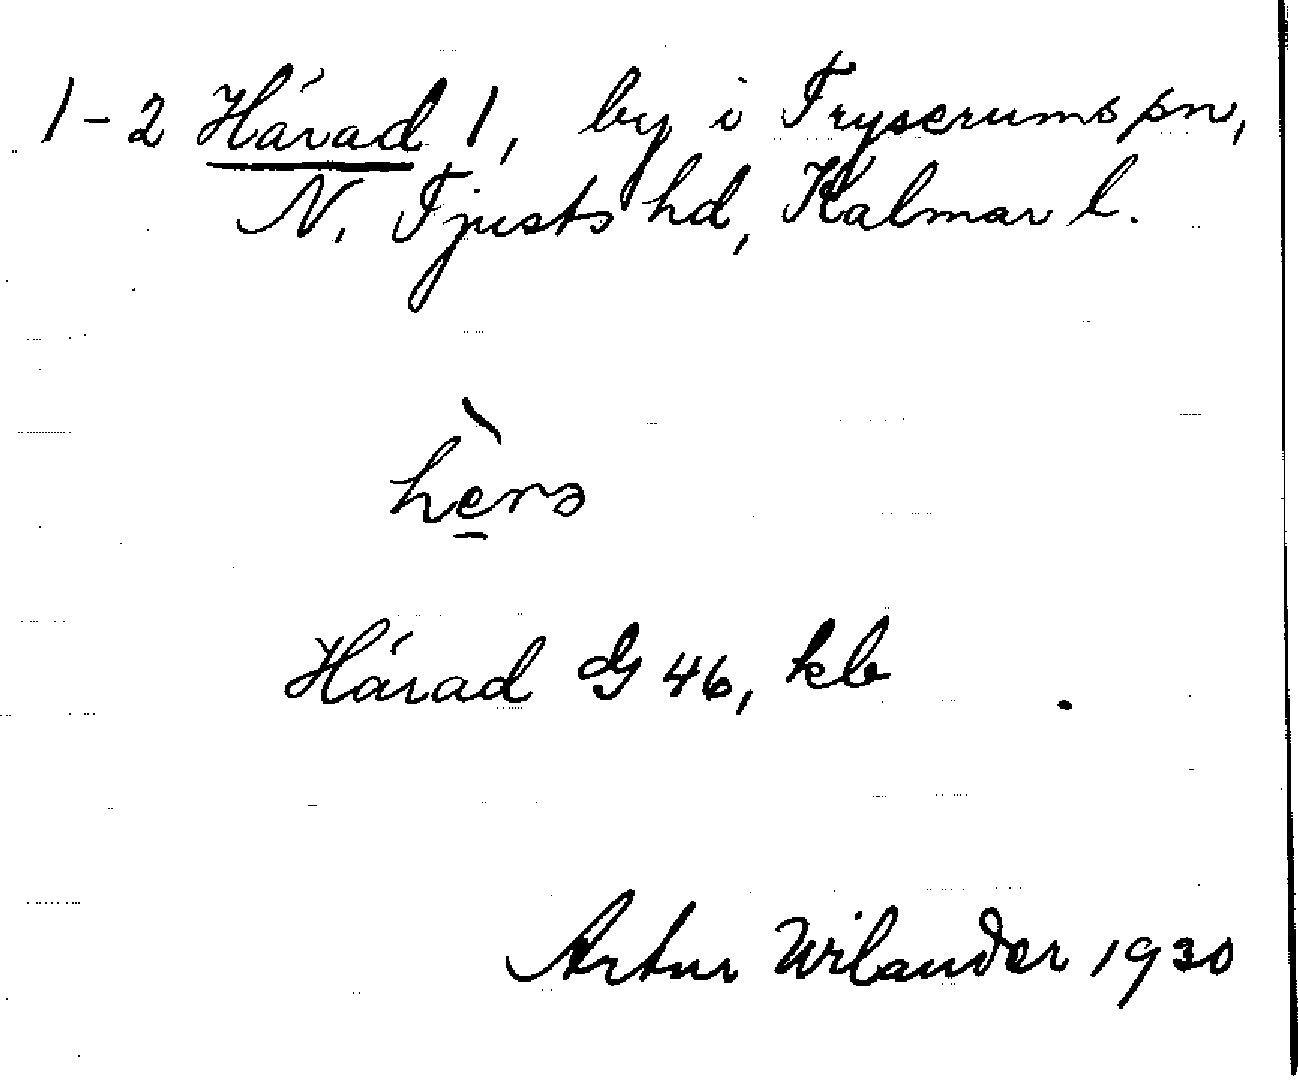 1-2 Hárad 1, by i Tryserums sn,
N. Tjusts hd, Kalmar l.
Hárad G 46, kb
Artur Wilander 1930